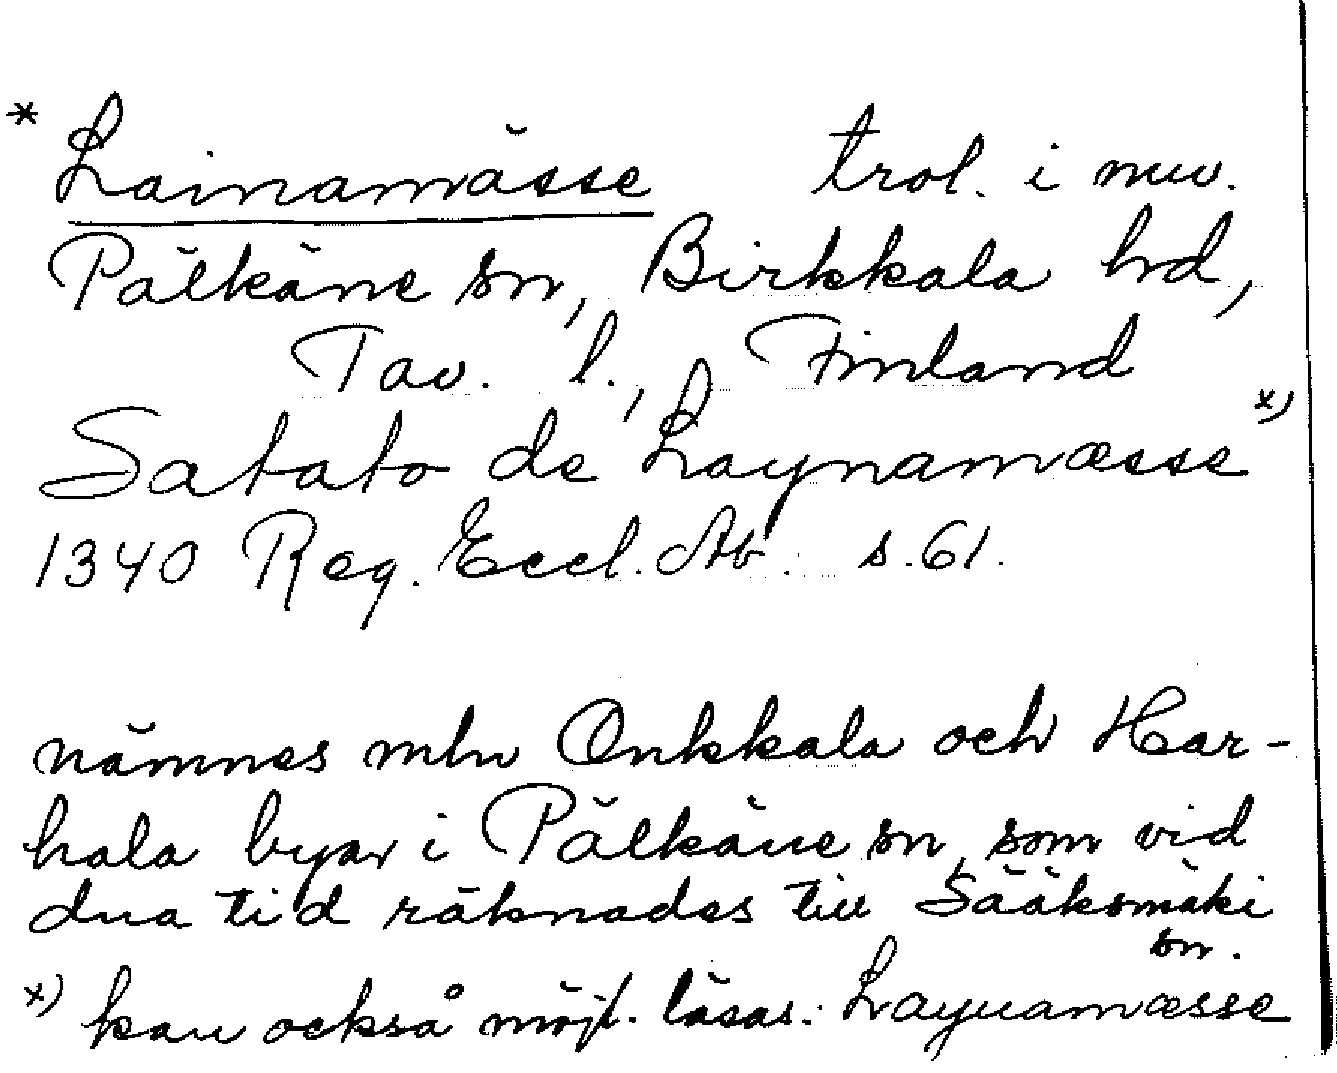 * Lainamässe trol. i nuv.
Pälkäne sn, Birkkala hd,
Tav. l., Finland
Satato de Laynamæsse x)
1340 Reg. Eccl. Ab. s. 61.
nämnes mln Onkkala och Har-
hala byar i Pälkäne sn, som vid
dna tid räknades till Sääksmäki
sn.
x) kan också möjl. läsas: Layuamæsse